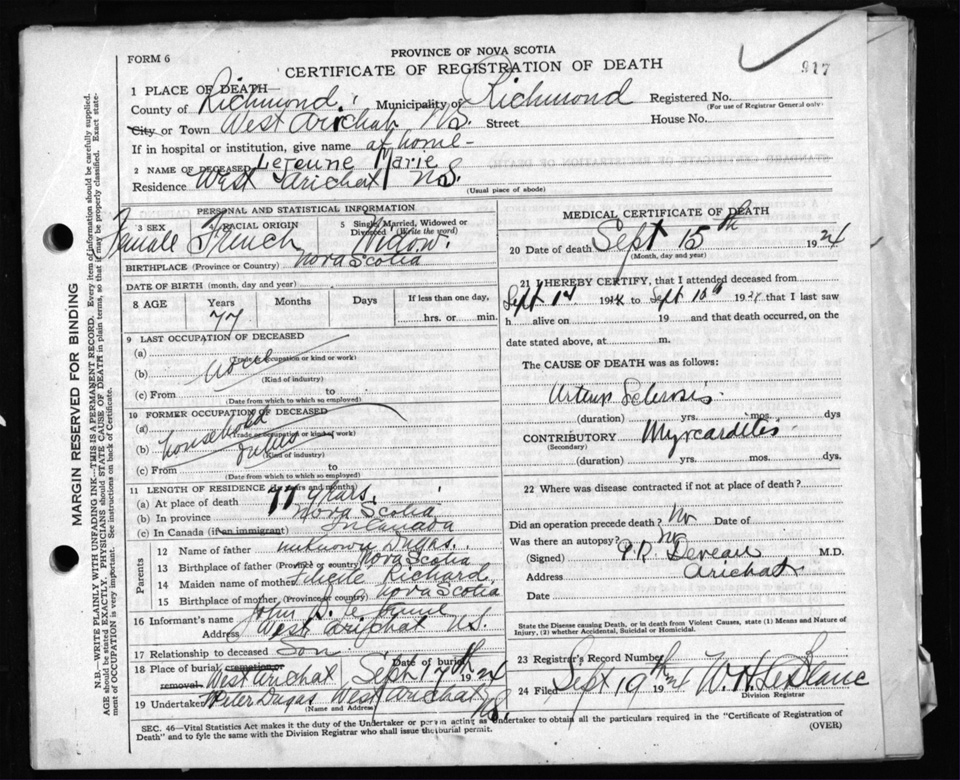 PROVINCE OF NOVA SCOTIA
FORM 6
CERTIFICATE OF REGISTRATION OF DEATH
917
1 PLACE OF DEATH—
County of Richmond. Municipality of Richmond Registered No.
(For use of Registrar General only)
City or Town West Arichat N.S. Street House No.
If in hospital or institution, give name at home-
2 NAME OF DECEASED LeJeune Marie
Residence West Arichat N.S.
(Usual place of abode)
PERSONAL AND STATISTICAL INFORMATION
3 SEX 4 RACIAL ORIGIN 5 Single, Married, Widowed or Divorced (Write the word)
Female French Widow.
BIRTHPLACE (Province or Country) Nova Scotia
DATE OF BIRTH (month, day and year)
8 AGE Years Months Days If less than one day,
77 hrs. or min.
9 LAST OCCUPATION OF DECEASED
(a)
(Trade occupation or kind or work)
(b)
(Kind of industry)
(c) From to
(Date from which to which so employed)
10 FORMER OCCUPATION OF DECEASED
(a)
(Trade or occupation or kind of work)
household
(b) duties
(Kind of industry)
(c) From to
(Date from which to which so employed)
11 LENGTH OF RESIDENCE (in years and months)
(a) At place of death 77 years.
(b) In province Nova Scotia
(c) In Canada (if an immigrant) In Canada
Parents
12 Name of father unknown Dugas.
13 Birthplace of father (Province or country) Nova Scotia
14 Maiden name of mother Richard
15 Birthplace of mother (Province or country) Nova Scotia
16 Informant's name John
Address West Arichat N.S.
17 Relationship to deceased Son
18 Place of burial, cremation or removal. Date of burial
West Arichat Sept 17th 1924
19 Undertaker Peter Dugas West Arichat N.S.
(Name and Address)
MEDICAL CERTIFICATE OF DEATH
20 Date of death Sept 15th 1924
(Month, day and year)
21 I HEREBY CERTIFY, that I attended deceased from
Sept 14 1924 to Sept 15th 1924 that I last saw
h alive on 19 and that death occurred, on the
date stated above, at m.
The CAUSE OF DEATH was as follows:
Arterio Sclerosis
(duration) yrs. mos. dys
CONTRIBUTORY Myocarditis
(Secondary)
(duration) yrs. mos. dys.
22 Where was disease contracted if not at place of death?
Did an operation precede death? No Date of
Was there an autopsy? No
(Signed) Deveau M.D.
Address Arichat
Date
State the Disease causing Death, or in death from Violent Causes, state (1) Means and Nature of Injury, (2) whether Accidental, Suicidal or Homicidal.
23 Registrar's Record Number
24 Filed Sept 19th 1924 W. H. LeBlanc
Division Registrar
SEC. 46—Vital Statistics Act makes it the duty of the Undertaker or person acting as Undertaker to obtain all the particulars required in the "Certificate of Registration of
Death" and to fyle the same with the Division Registrar who shall issue the burial permit. (OVER)
MARGIN RESERVED FOR BINDING
N.B.—WRITE PLAINLY WITH UNFADING INK—THIS IS A PERMANENT RECORD. Every item of information should be carefully supplied.
AGE should be stated EXACTLY. PHYSICIANS should STATE CAUSE OF DEATH in plain terms, so that it may be properly classified. Exact statement
of OCCUPATION is very important. See instructions on back of Certificate.